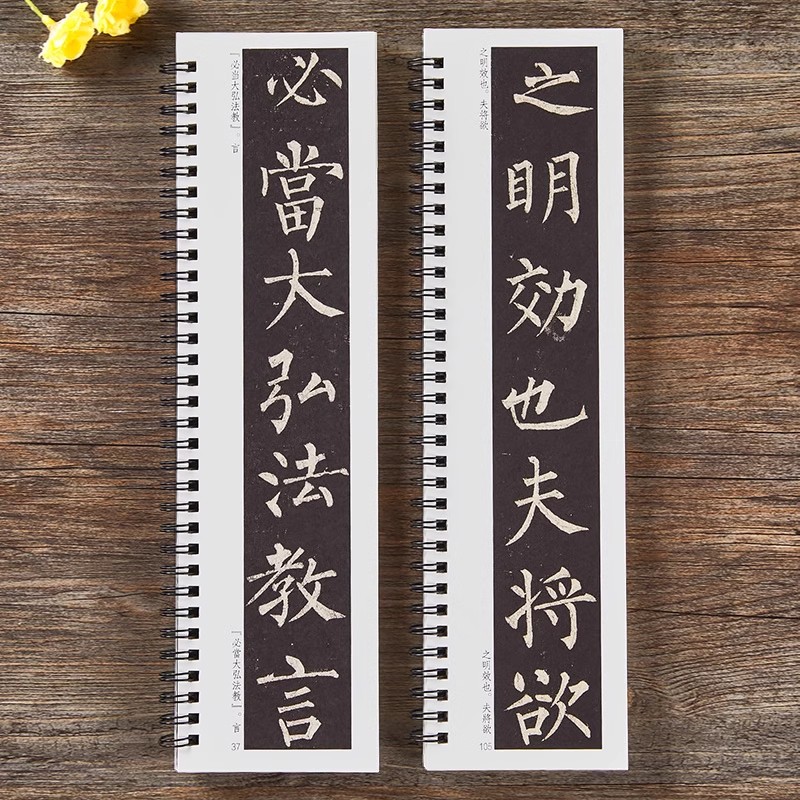 『必当大弘法教』。言
必當大弘法教言
『必當大弘法教』。言
37
之明效也。夫将欲
之明効也夫将欲
之明效也。夫將欲
105